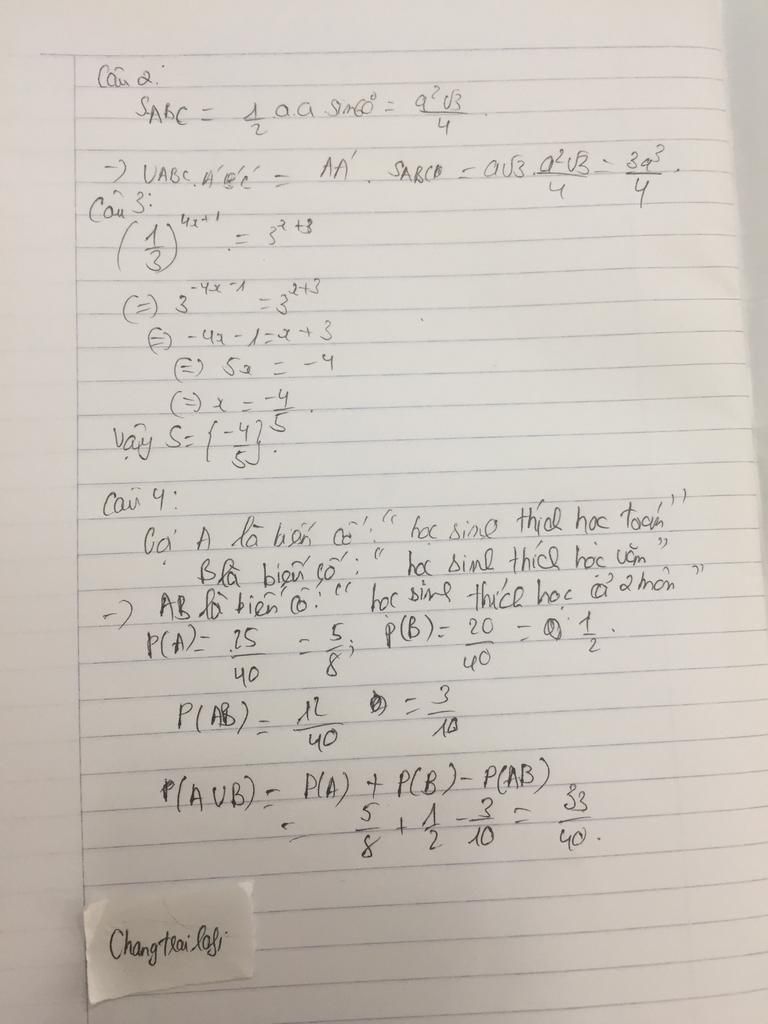 Câu 2:
S_ABC = 1/2 a.a.sin60° = a²√3/4.
→ V_ABC.A'B'C' = AA'. S_ABC = a√3 . a²√3/4 = 3a³/4.
Câu 3:
(1/3)^(4x+1) = 3^(x+3)
(=) 3^(-4x-1) = 3^(x+3)
(=) -4x-1=x+3
(=) 5x = -4
(=) x = -4/5.
Vậy S={-4/5}.
Câu 4:
Gọi A là biến cố: "học sinh thích học toán"
B là biến cố: "học sinh thích học văn"
→ AB là biến cố: "học sinh thích học cả 2 môn"
P(A)= 25/40 = 5/8; P(B)= 20/40 = 1/2.
P(AB) = 12/40 = 3/10
P(A∪B) = P(A) + P(B) - P(AB)
= 5/8 + 1/2 - 3/10 = 33/40.